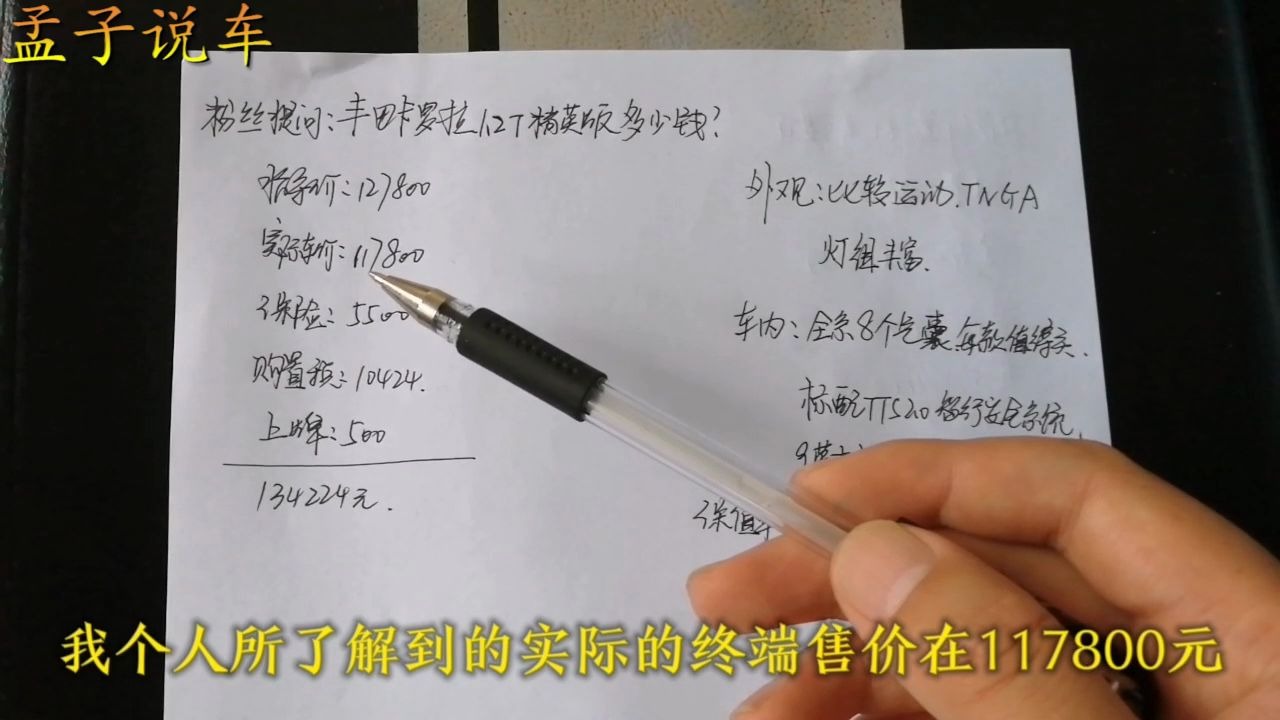 孟子说车
粉丝提问:丰田卡罗拉1.2T精英版多少钱?
指导价:127800
实际车价:117800
保险:5500
购置税:10424.
上牌:500
134224元.
外观:比较运动.TNGA
灯组丰富.
车内:全系8个气囊.每款值得买.
标配TTS2.0智行安全系统,
保值率
我个人所了解到的实际的终端售价在117800元